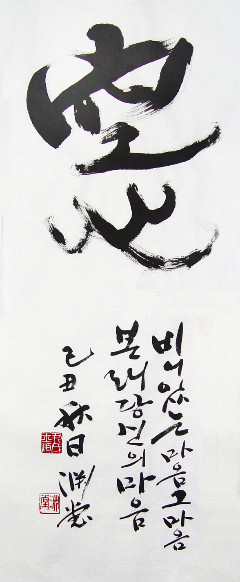 空心
비어있는 마음 그 마음
본래 당신의 마음
己丑 秋日